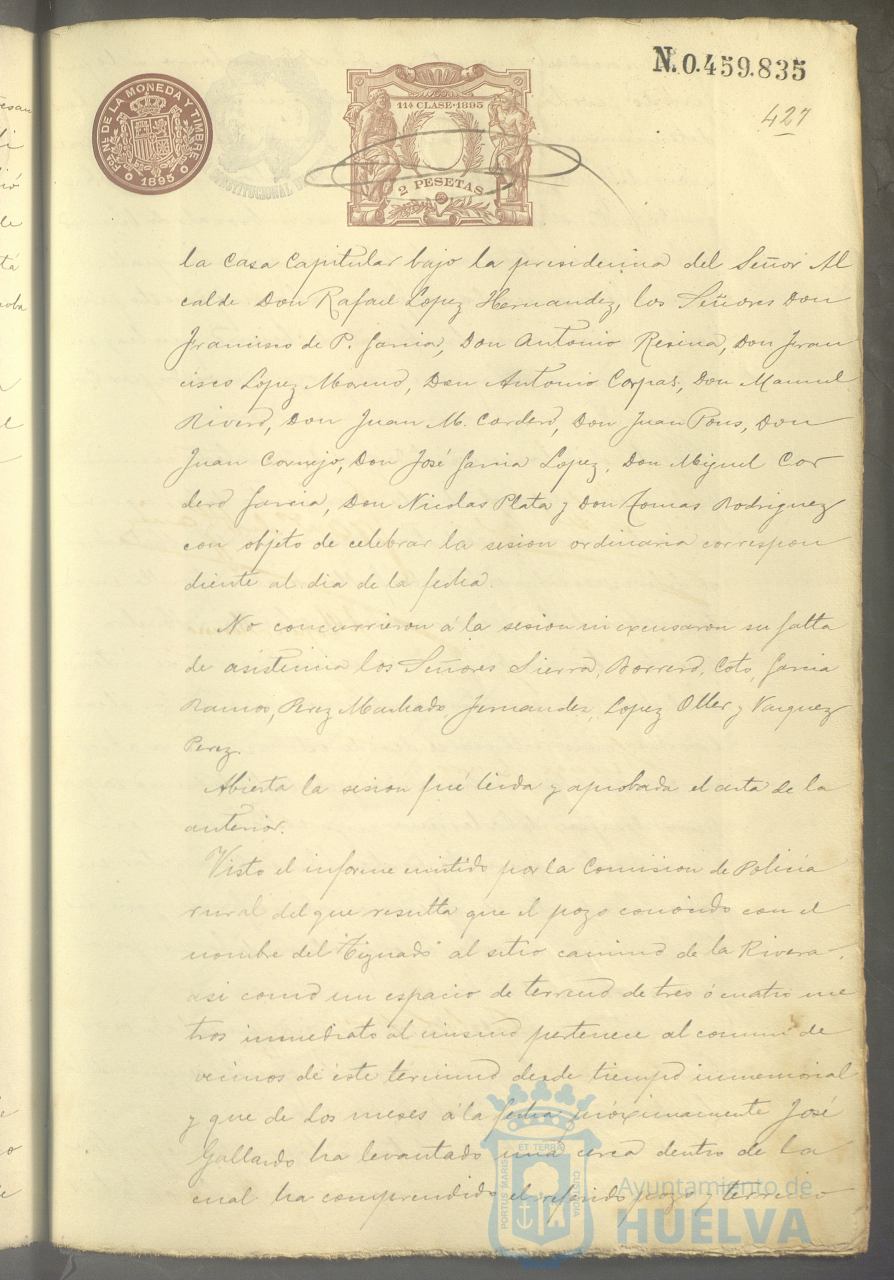 N.0.459.835
427
FCA NLE DE LA MONEDA Y TIMBRE
1895
CONSTITUCIONAL
11ª CLASE·1895
2 PESETAS
la Casa Capitular bajo la presidencia del Señor Al
calde Don Rafael Lopez Hernandez, los Señores Don
Francisco de P. Garcia, Don Antonio Resina, Don Fran
cisco Lopez Moreno, Don Antonio Corpas, Don Manuel
Rivero, Don Juan M. Cordero, Don Juan Pons, Don
Juan Cornejo, Don José Garcia Lopez, Don Miguel Cor
dero Garcia, Don Nicolas Plata y Don Tomas Rodriguez
con objeto de celebrar la sesion ordinaria correspon
diente al dia de la fecha.
No concurrieron á la sesion ni excusaron su falta
de asistencia los Señores Sierra, Borrero, Coto, Garcia
Ramos, Perez Machado, Fernandez, Lopez Oller y Vazquez
Perez.
Abierta la sesion fué leida y aprobada el acta de la
anterior.
Visto el informe emitido por la Comision de Policia
rural del que resulta que el pozo conocido con el
nombre del "Tignado" al sitio camino de la Rivera,
asi como un espacio de terreno de tres ó cuatro me
tros inmediato al mismo pertenece al comun de
vecinos de este término desde tiempo inmemorial
y que de dos meses á la fecha próximamente José
Gallardo ha levantado una cerca dentro de la
cual ha comprendido el referido pozo y terreno
PORTUS MARIS ET TERRÆ CUSTODIA
Ayuntamiento de
HUELVA